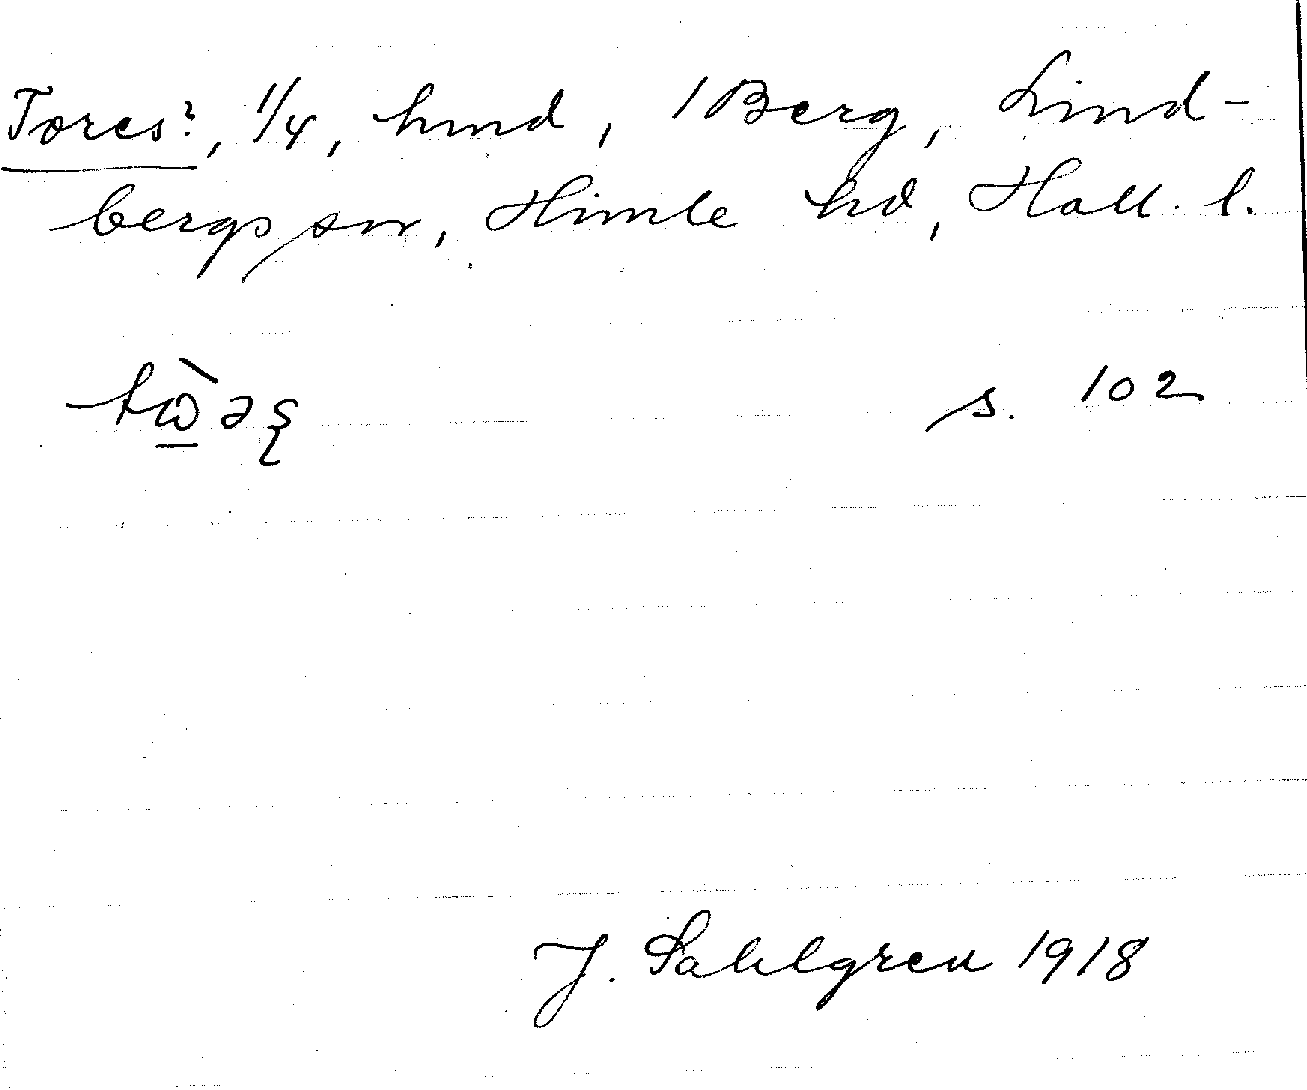 Tores?, 1/4, hmd, 1 Berg, Lind-
bergs sn, Himle hd, Hall. l.
s. 102
J. Sahlgren 1918